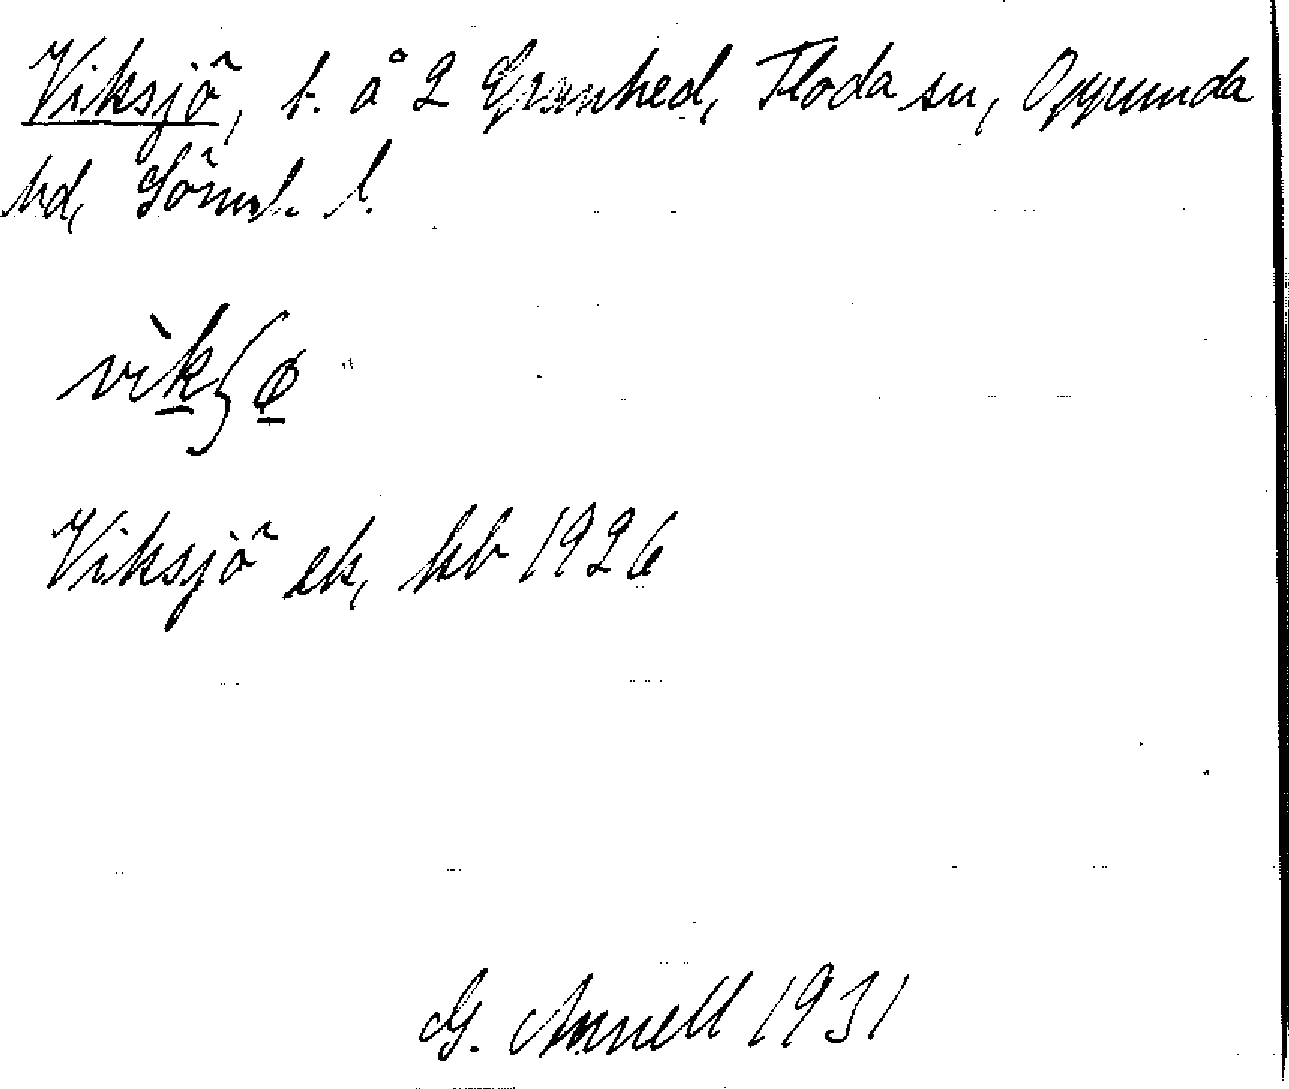 Viksjö, t. å 2 Granhed, Floda sn, Oppunda
hd, Söml. l.
vìkʃø
Viksjö ek, kb 1926
G. Annell 1931